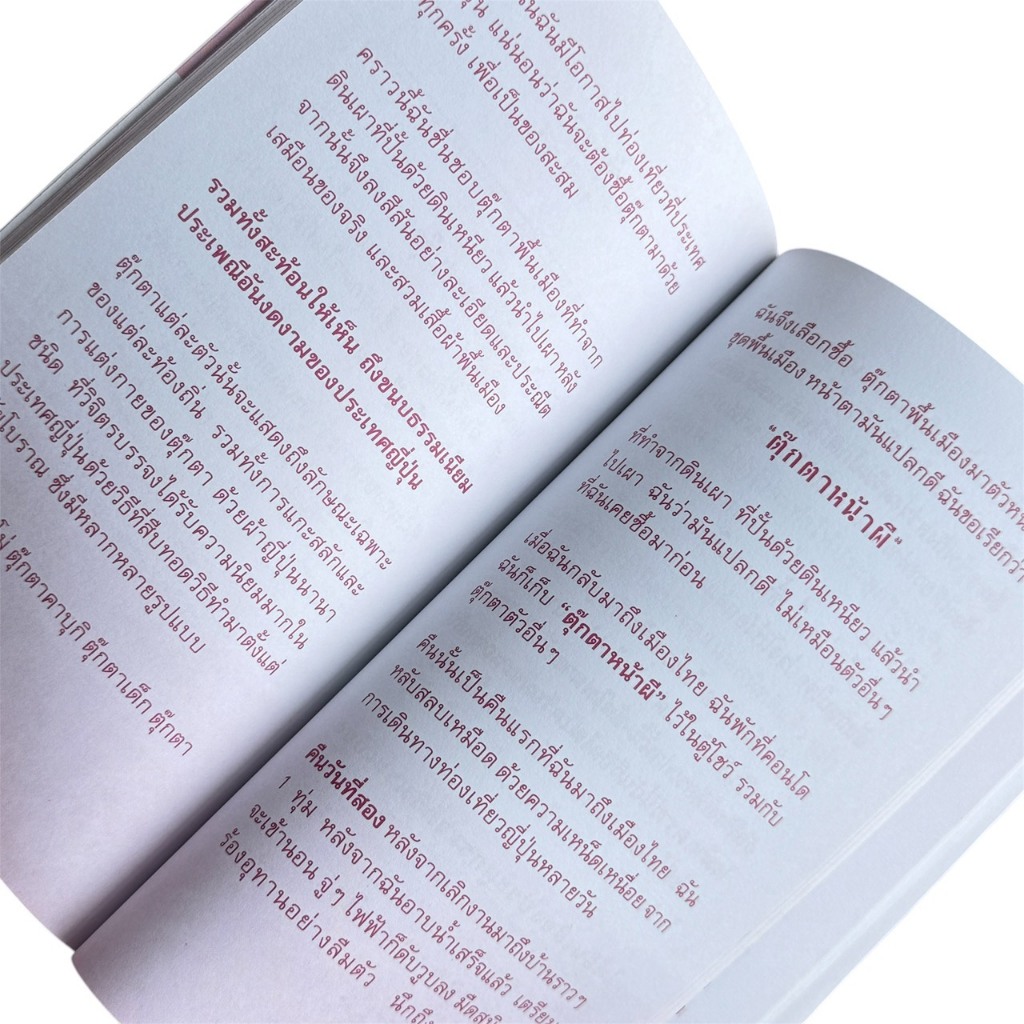 ฉันมีโอกาสไปท่องเที่ยวที่ประเทศ
แน่นอนว่าฉันจะต้องซื้อตุ๊กตามาด้วย
ทุกครั้ง เพื่อเป็นของสะสม
คราวนี้ฉันชื่นชอบตุ๊กตาพื้นเมืองที่ทำจาก
ดินเผาที่ปั้นด้วยดินเหนียว แล้วนำไปเผาหลัง
จากนั้นจึงลงสีสันอย่างละเอียดและประณีต
เสมือนของจริง และสวมเสื้อผ้าพื้นเมือง
รวมทั้งสะท้อนให้เห็น ถึงขนบธรรมเนียม
ประเพณีอันงดงามของประเทศญี่ปุ่น
ตุ๊กตาแต่ละตัวนั้นจะแสดงถึงลักษณะเฉพาะ
ของแต่ละท้องถิ่น รวมทั้งการแกะสลักและ
การแต่งกายของตุ๊กตา ด้วยผ้าญี่ปุ่นนานา
ชนิด ที่วิจิตรบรรจงได้รับความนิยมมากใน
ประเทศญี่ปุ่นด้วยวิธีที่สืบทอดวิธีทำมาตั้งแต่
โบราณ ซึ่งมีหลากหลายรูปแบบ
ตุ๊กตาคาบุกิ ตุ๊กตาเด็ก ตุ๊กตา
ฉันจึงเลือกซื้อ ตุ๊กตาพื้นเมืองมาตัวหนึ่ง
ชุดพื้นเมือง หน้าตามันแปลกดี ฉันขอเรียกว่า
"ตุ๊กตาหน้าผี"
ที่ทำจากดินเผา ที่ปั้นด้วยดินเหนียว แล้วนำ
ไปเผา ฉันว่ามันแปลกดี ไม่เหมือนตัวอื่นๆ
ที่ฉันเคยซื้อมาก่อน
เมื่อฉันกลับมาถึงเมืองไทย ฉันพักที่คอนโด
ฉันก็เก็บ "ตุ๊กตาหน้าผี" ไว้ในตู้โชว์ รวมกับ
ตุ๊กตาตัวอื่นๆ
คืนนั้นเป็นคืนแรกที่ฉันมาถึงเมืองไทย ฉัน
หลับสลบเหมือด ด้วยความเหน็ดเหนื่อย จาก
การเดินทางท่องเที่ยวญี่ปุ่นหลายวัน
คืนวันที่สอง หลังจากเลิกงานมาถึงบ้านราวๆ
1 ทุ่ม หลังจากฉันอาบน้ำเสร็จแล้ว เตรียม
จะเข้านอน จู่ๆ ไฟฟ้าก็ดับวูบลง มืดสนิท
ร้องอุทานอย่างลืมตัว
นึกถึง